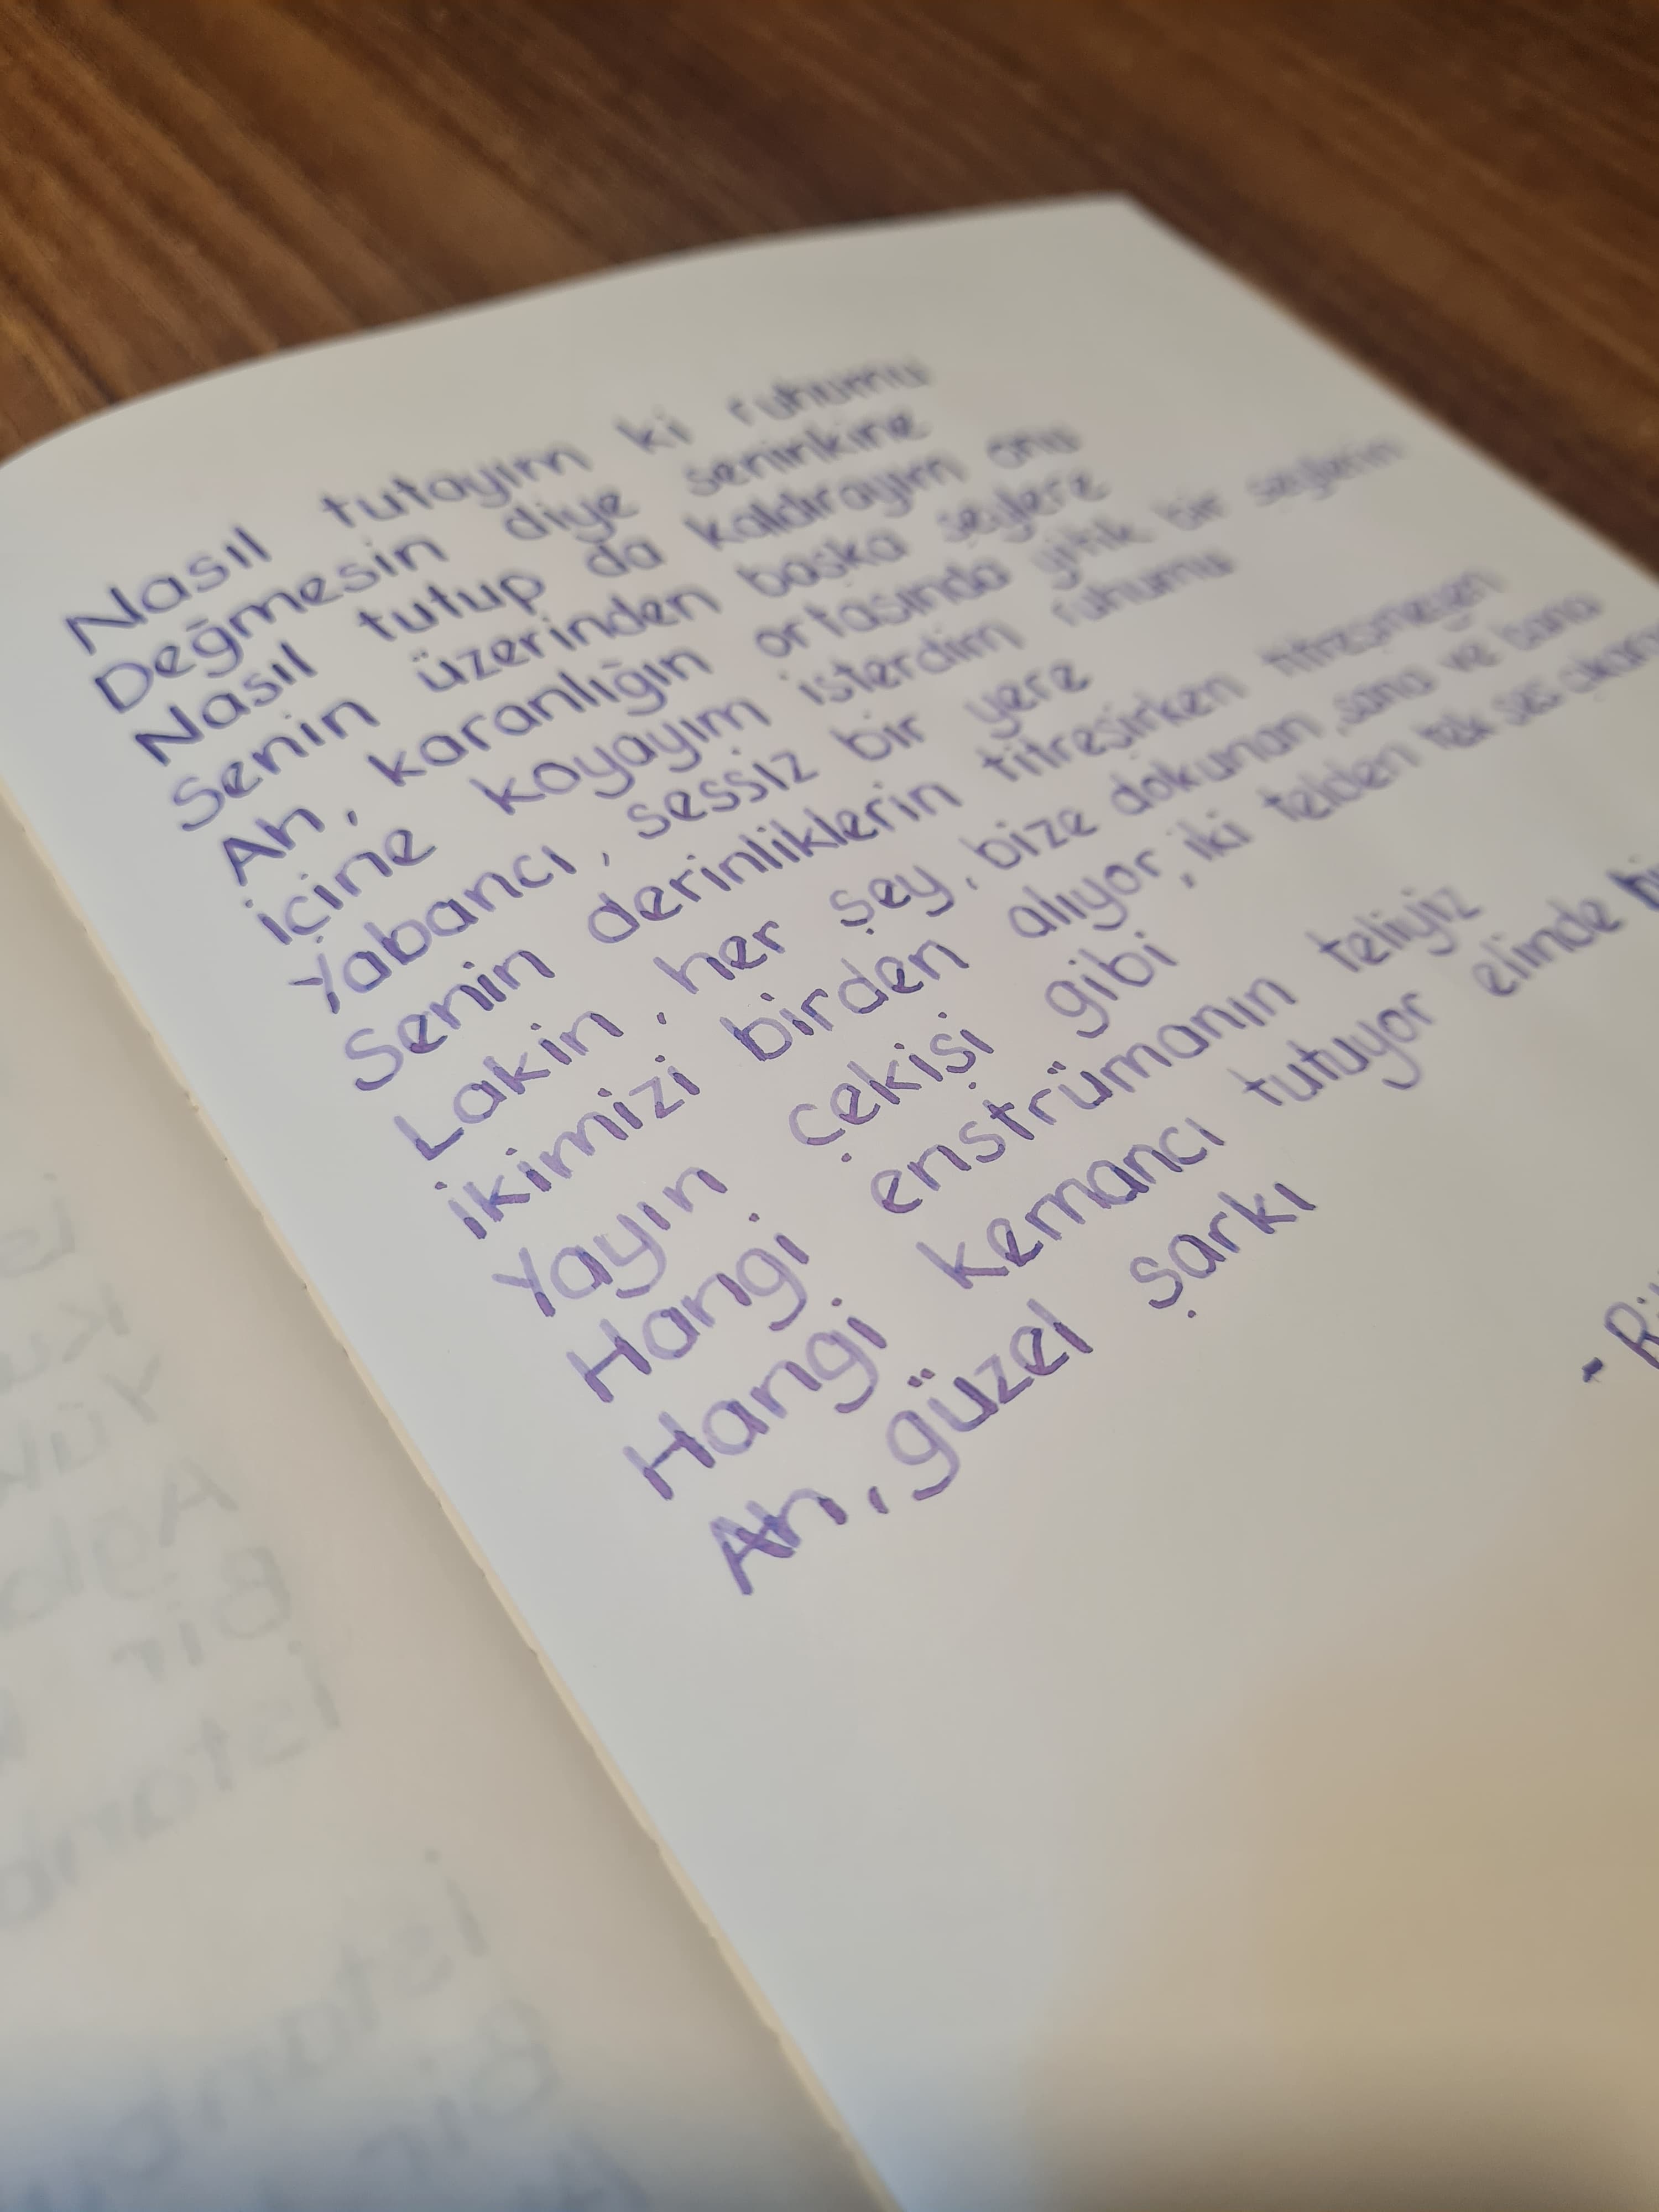 Nasıl tutayım ki ruhumu
Değmesin diye seninkine
Nasıl tutup da kaldırayım onu
Senin üzerinden başka şeylere
Ah, karanlığın ortasında yitik bir şeylerin
içine koyayım isterdim ruhumu
Yabancı, sessiz bir yere
Senin derinliklerin titreşirken titreşmeyen
Lakin, her şey, bize dokunan, sana ve bana
ikimizi birden alıyor, iki telden tek ses
Yayın çekişi gibi
Hangi enstrümanın teliyiz
Hangi kemancı tutuyor elinde
Ah, güzel şarkı